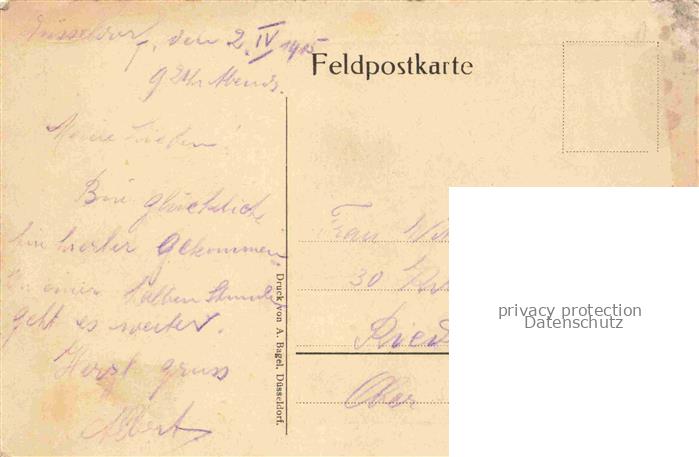 Düsseldorf, den 2.IV 1915
9 Uhr Abends.
Feldpostkarte
Meine Lieben!
Bin glücklich
hierher gekommen
In einer halben Stunde
geht es weiter.
Herzl gruss
Albert
Druck von A. Bagel, Düsseldorf.
Frau
30
Ried
Ober
privacy protection
Datenschutz